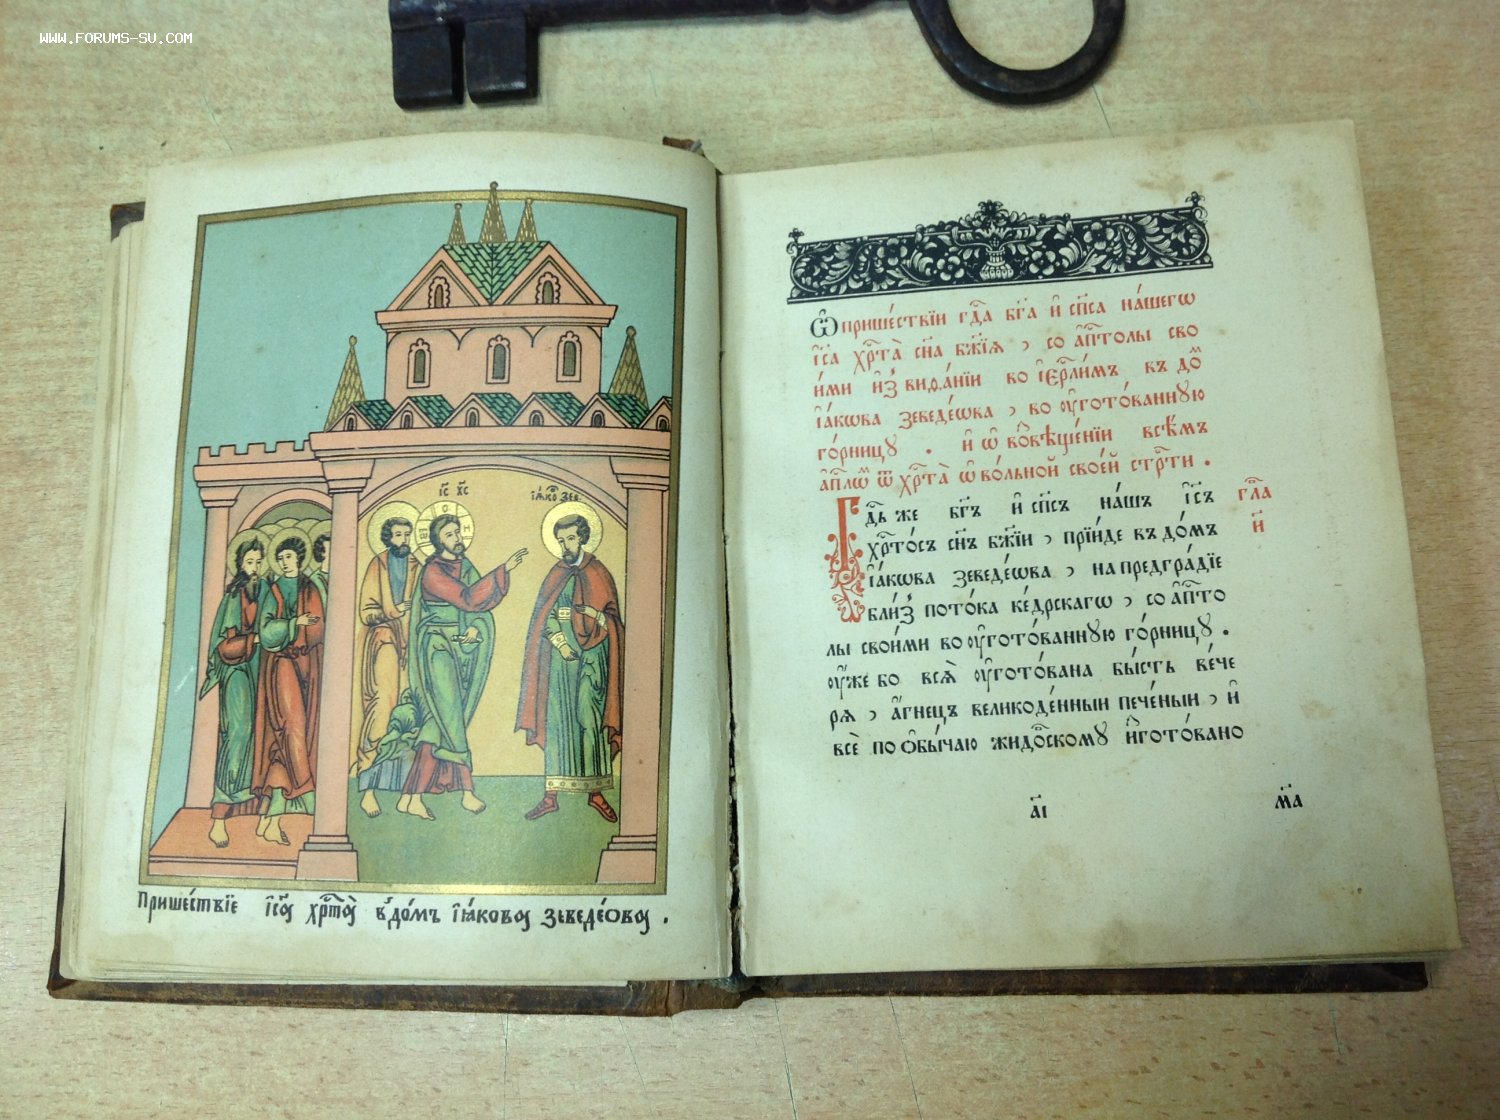 WWW.FORUMS-SU.COM
І҃С Х҃С
І҆ꙗ́кѡ зев.
Прише́ствїе і҆с҃ꙋ хр҃то́ꙋ в̾до́мъ і҆ꙗ́ковꙋ зеведе́ѡвꙋ.
Ѽ прише́ствїи гд҇а бг҃а и҆ сп҃са на́шегѡ
і҆с҃а хр҇та̀ сн҃а бж҃їѧ , со а҆п҇толы сво
и́ми и҆з̾ виѳа́нїи во і҆ер҇ли́мъ къ до́м
і҆а́кѡва зеведе́ѡва , во ᲂу҆гото́ванную
го́рницу . и҆ ѡ҆ возвѣще́нїи всѣ́мъ
а҆п҇лѡм ѿ хр҇та̀ ѡ҆ во́льной свое́й стр҇ти .
Гд҇ь же бг҃ъ и҆ сп҃съ на́шъ і҆с҃ъ
хр҇то́съ сн҃ъ бж҃їи , прїи́де въ до́мъ
і҆а́кѡва зеведе́ѡва , на предгра́дїе
бли́з̾ пото́ка ке́дрскагѡ , со а҆п҇то
лы свои́ми во ᲂу҆гото́ванную го́рницꙋ .
ᲂу҆́же бо всѧ̀ ᲂу҆гото́вана бы́сть ве́че
рѧ , а҆́гнецъ великоде́нныи пече́ныи , и҆
всѐ по ѻ҆бы́чаю жидо́вскомꙋ и҆згото́вано
гл҇а
и҃
а҃і
м҃а